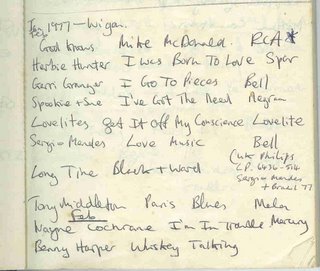 Jan 1977 — Wigan.
God knows. Mike McDonald. RCA*
Herbie Hunter I Was Born To Love Spar
Gerri Granger I Go To Pieces Bell
Spookie + Sue I've Got The Need
Lovelites Get It Off My Conscience Lovelite
Sergio Mendes Love Music Bell
(UK Philips
L.P. 6436-514
Sergio Mendes
+ Brazil 77
Long Time Black + Ward
Tony Middleton Paris Blues Mala
Feb
Wayne Cochrane I'm In Trouble Mercury
Benny Harper Whiskey Talking